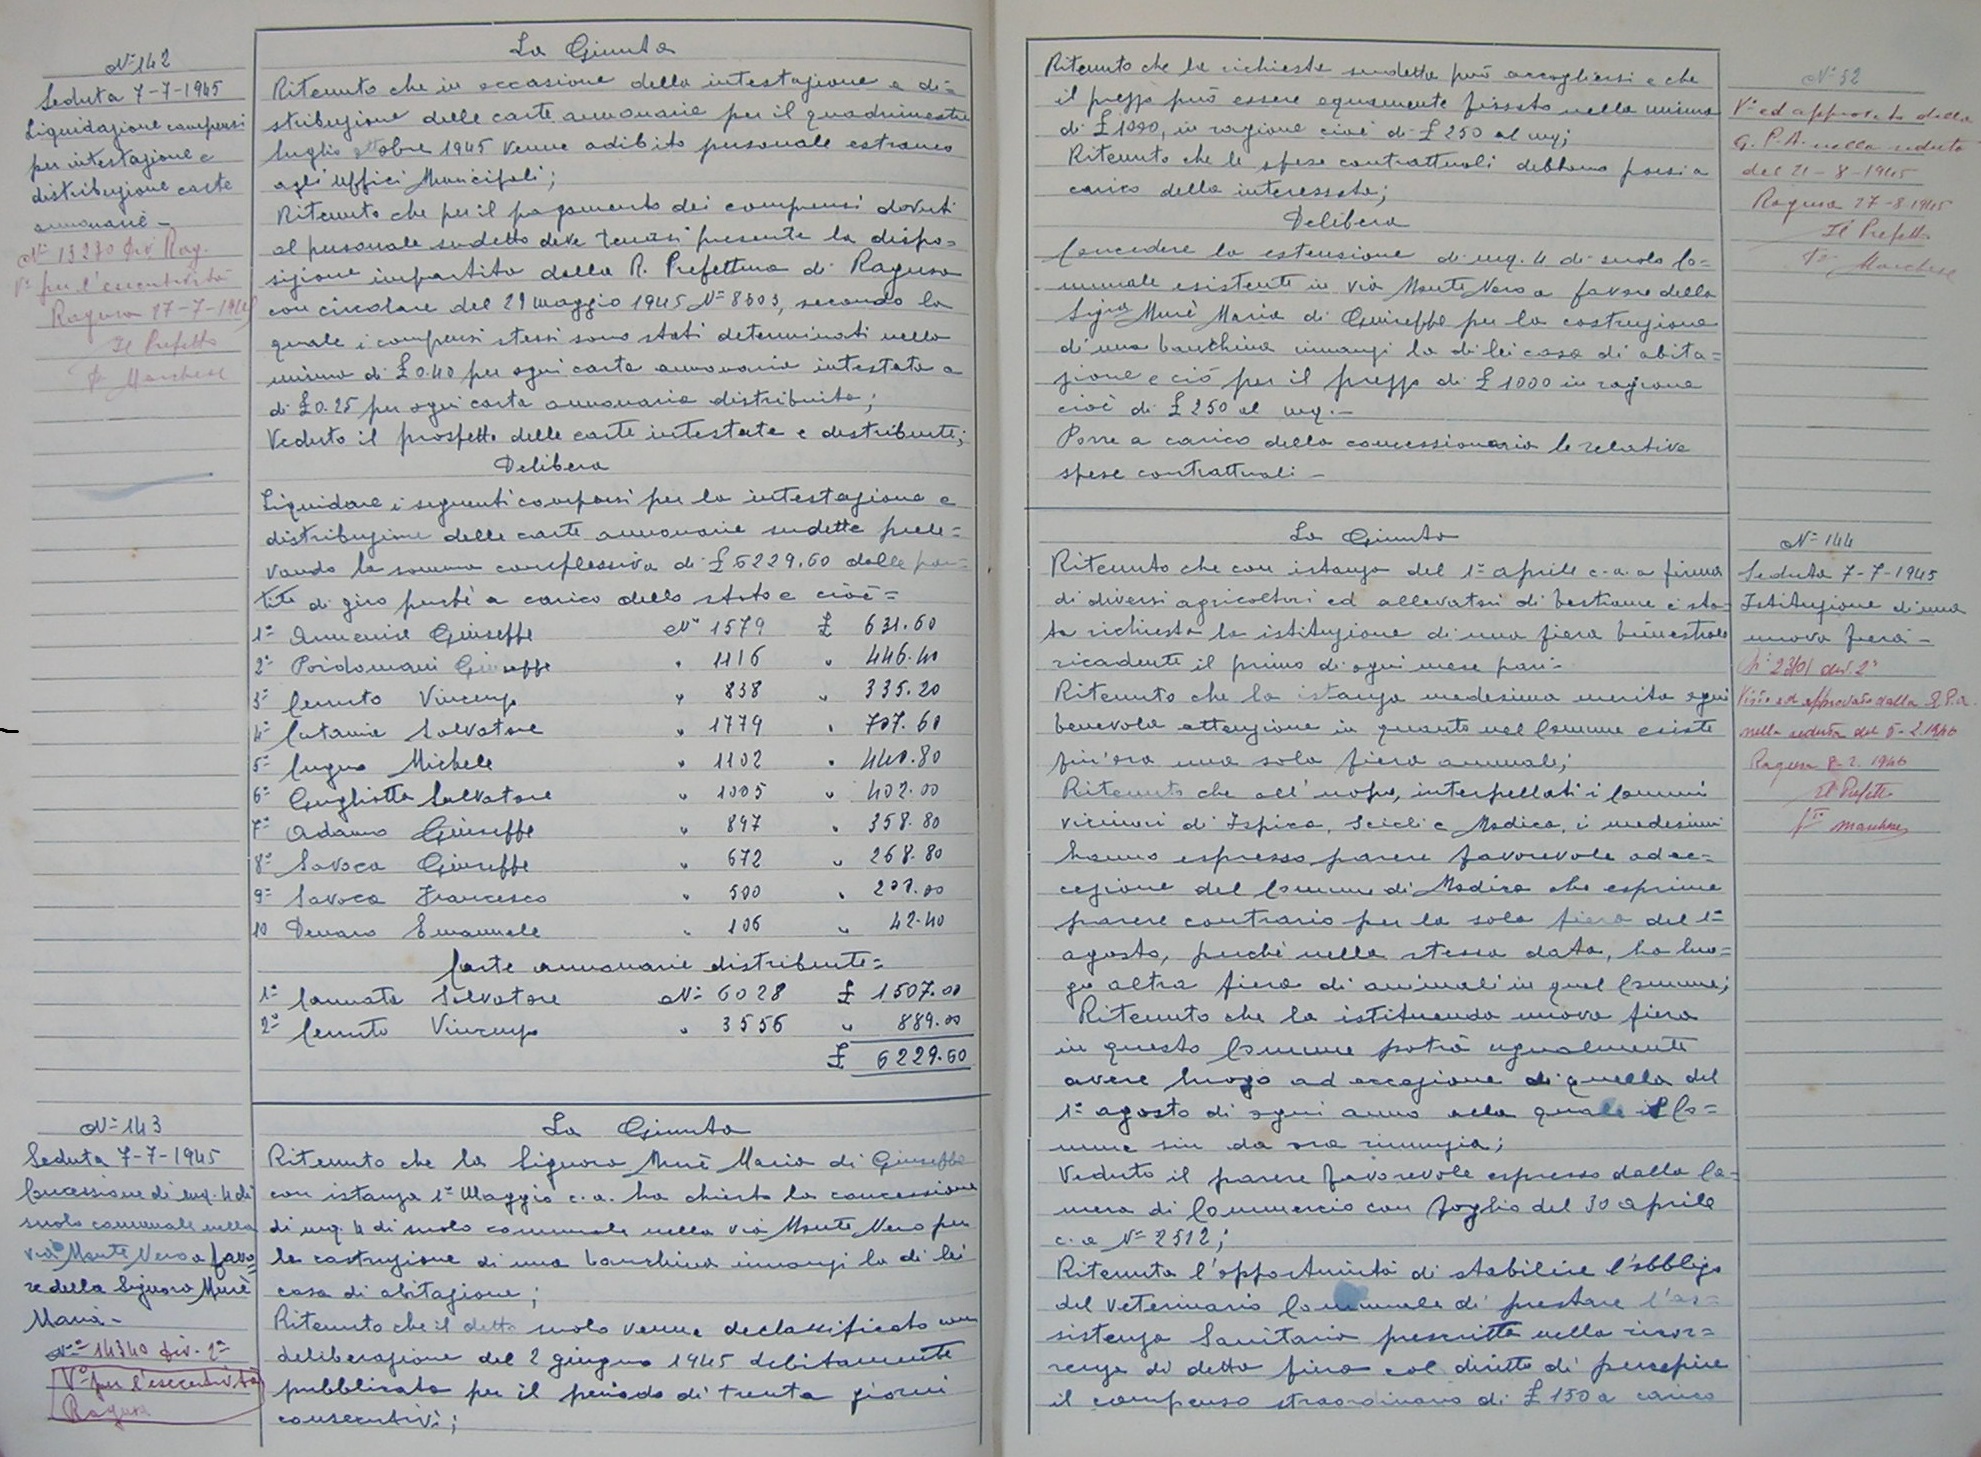 N° 142
Seduta 7-7-1945
Liquidazione compensi
per intestazione e
distribuzione carte
annonarie -
N° 13270 Div Rag.
V° per l'esecutività
Ragusa 27-7-1945
Il Prefetto
Marchese
La Giunta
Ritenuto che in occasione della intestazione e di=
stribuzione delle carte annonarie per il quadrimestre
luglio ottobre 1945 venne adibito personale estraneo
agli uffici Municipali;
Ritenuto che per il pagamento dei compensi dovuti
al personale sudetto deve tenersi presente la dispo=
sizione impartita dalla R. Prefettura di Ragusa
con circolare del 29 Maggio 1945 N° 8303, secondo la
quale i compensi stessi sono stati determinati nella
misura di £ 0.40 per ogni carta annonaria intestata e
di £ 0.25 per ogni carta annonaria distribuita;
Veduto il prospetto delle carte intestate e distribuite;
Delibera
Liquidare i seguenti compensi per la intestazione e
distribuzione delle carte annonarie sudette prele=
vando la somma complessiva di £ 6229.60 dalle par=
tite di giro perché a carico dello stato e cioè=
1° Giuseppe N° 1579 £ 631.60
2° Poidomani Giuseppe " 1116 " 446.40
3° Cerruto Vincenzo " 838 " 335.20
4° Catania Salvatore " 1779 " 707.60
5° Michele " 1102 " 440.80
6° Gugliotta Salvatore " 1005 " 402.00
7° Adamo Giuseppe " 897 " 358.80
8° Savoca Giuseppe " 672 " 268.80
9° Savoca Francesco " 500 " 200.00
10 Denaro Emanuele " 106 " 42.40
Carte annonarie distribuite=
1° Cannata Salvatore N° 6028 £ 1507.00
2° Cerruto Vincenzo " 3556 " 889.00
£ 6229.60
N° 143
Seduta 7-7-1945
Concessione di mq. 4 di
suolo comunale nella
via Monte Nero a favo=
re della Signora Murè
Maria -
N° 14340 Div. 2ª
V° per l'esecutività
Ragusa
La Giunta
Ritenuto che la Signora Murè Maria di Giuseppe
con istanza 1° Maggio c.a. ha chiesto la concessione
di mq. 4 di suolo comunale nella via Monte Nero per
la costruzione di una banchina innanzi la di lei
casa di abitazione;
Ritenuto che il detto suolo venne declassificato con
deliberazione del 2 giugno 1945 debitamente
pubblicata per il periodo di trenta giorni
consecutivi;
Ritenuto che la richiesta sudetta può accogliersi e che
il prezzo può essere equamente fissato nella misura
di £ 1000, in ragione cioè di £ 250 al mq;
Ritenuto che le spese contrattuali debbano porsi a
carico della interessata;
Delibera
Concedere la estensione di mq. 4 di suolo Co=
munale esistente in via Monte Nero a favore della
Sig.ra Murè Maria di Giuseppe per la costruzione
di una banchina innanzi la di lei casa di abita=
zione e ciò per il prezzo di £ 1000 in ragione
cioè di £ 250 al mq. -
Porre a carico della concessionaria le relative
spese contrattuali -
N° 52
V° ed approvato dalla
G. P. A. nella seduta
del 21-8-1945
Ragusa 27-8-1945
Il Prefetto
Marchese
La Giunta
Ritenuto che con istanza del 1° aprile c.a. a firma
di diversi agricoltori ed allevatori di bestiame è sta=
ta richiesta la istituzione di una fiera bimestrale
ricadente il primo di ogni mese pari=
Ritenuto che la istanza medesima merita ogni
benevola attenzione in quanto nel Comune esiste
fin'ora una sola fiera annuale;
Ritenuto che all'uopo, interpellati i Comuni
viciniori di Ispica, Scicli e Modica, i medesimi
hanno espresso parere favorevole ad ec=
cezione del Comune di Modica che esprime
parere contrario per la sola fiera del 1°
agosto, perchè nella stessa data, ha luo=
go altra fiera di animali in quel Comune;
Ritenuto che la istituenda nuova fiera
in questo Comune potrà ugualmente
avere luogo ad eccezione di quella del
1° agosto di ogni anno alla quale il Co=
mune sin da ora rinunzia;
Veduto il parere favorevole espresso dalla Ca=
mera di Commercio con foglio del 30 aprile
c.a N° 2512;
Ritenuta l'opportunità di stabilire l'obbligo
del veterinario Comunale di prestare l'as=
sistenza Sanitaria prescritta nella ricor=
renza di detta fiera col diritto di percepire
il compenso straordinario di £ 150 a carico
N° 144
Seduta 7-7-1945
Istituzione di una
nuova fiera -
N° 2301 div. 2ª
Visto ed approvato dalla G.P.A.
nella seduta del 5-2-1946
Ragusa 8-2-1946
Il Prefetto
Marchese